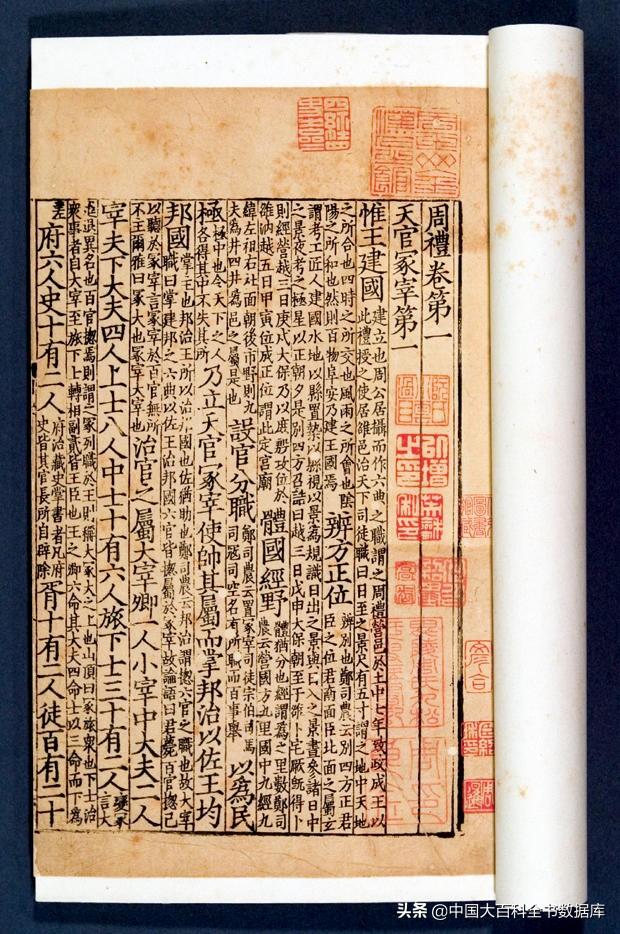 周禮卷第一
天官冢宰第一
惟王建國
建立也周公居攝而作六典之職謂之周禮營邑於土中七年致政成王以
此禮授之使居雒邑治天下司徒職曰日至之景尺有五寸謂之地中天地
之所合也四時之所交也風雨之所會也陰
陽之所和也然則百物阜安乃建王國焉
辨方正位
辨別也鄭司農云別四方正君
臣之位君南面臣北面之屬玄
謂考工匠人建國水地以縣置槷以縣視以景為規識日出之景與日入之景晝參諸日中
之景夜考之極星以正朝夕是別四方召誥曰越三日戊申大保朝至于雒卜宅厥旣得卜
則經營越三日庚戌大保乃以庶殷攻位於
雒汭越五日甲寅位成正位謂此定宮廟
體國經野
體猶分也經謂為之里數鄭司
農云營國方九里國中九經九
緯左祖右社面朝後市野則九
夫為井四井為邑之屬是也
設官分職
鄭司農云置冢宰司徒宗伯司馬
司寇司空各有所職而百事舉
以為民
極
極中也令天下之人
各得其中不失其所
乃立天官冢宰使帥其屬而掌邦治以佐王均
邦國
掌主也邦治王所以治邦國也佐猶助也鄭司農云邦治謂摠六官之職也故大宰
職曰掌建邦之六典以佐王治邦國六官皆摠屬於冢宰故論語曰君薨百官摠己
以聽於冢宰言冢宰於百官無所
不主爾雅曰冢大也冢宰大宰也
治官之屬大宰卿一人小宰中大夫二人
宰夫下大夫四人上士八人中士十有六人旅下士三十有二人
變冢
言大
進退異名也百官摠焉則謂之冢列職於王則稱大冢大之上也山頂曰冢旅衆也下士治
衆事者自大宰至旅下士轉相副貳皆王臣也王之卿六命其大夫四命士以三命而下為
差
府六人史十有二人
府治藏史掌書者凡府
史皆其官長所自辟除
胥十有二人徒百有二十
头条 @中国大百科全书数据库